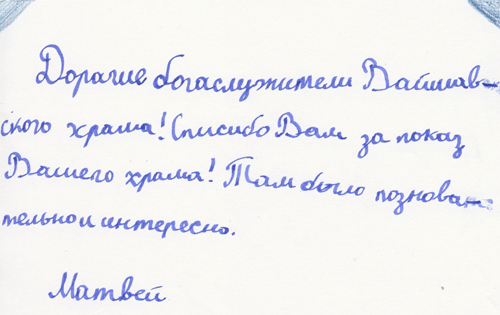 Дорагие богаслужители Вайшнав-
ского храма! Списибо Вам за показ
Вашего храма! Там было познова-
тельно и интересно.
Матвей